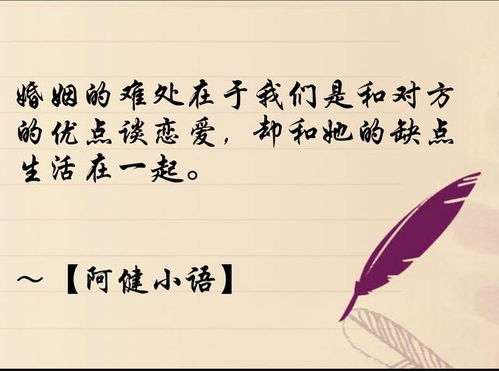 婚姻的难处在于我们是和对方
的优点谈恋爱，却和她的缺点
生活在一起。
～【阿健小语】